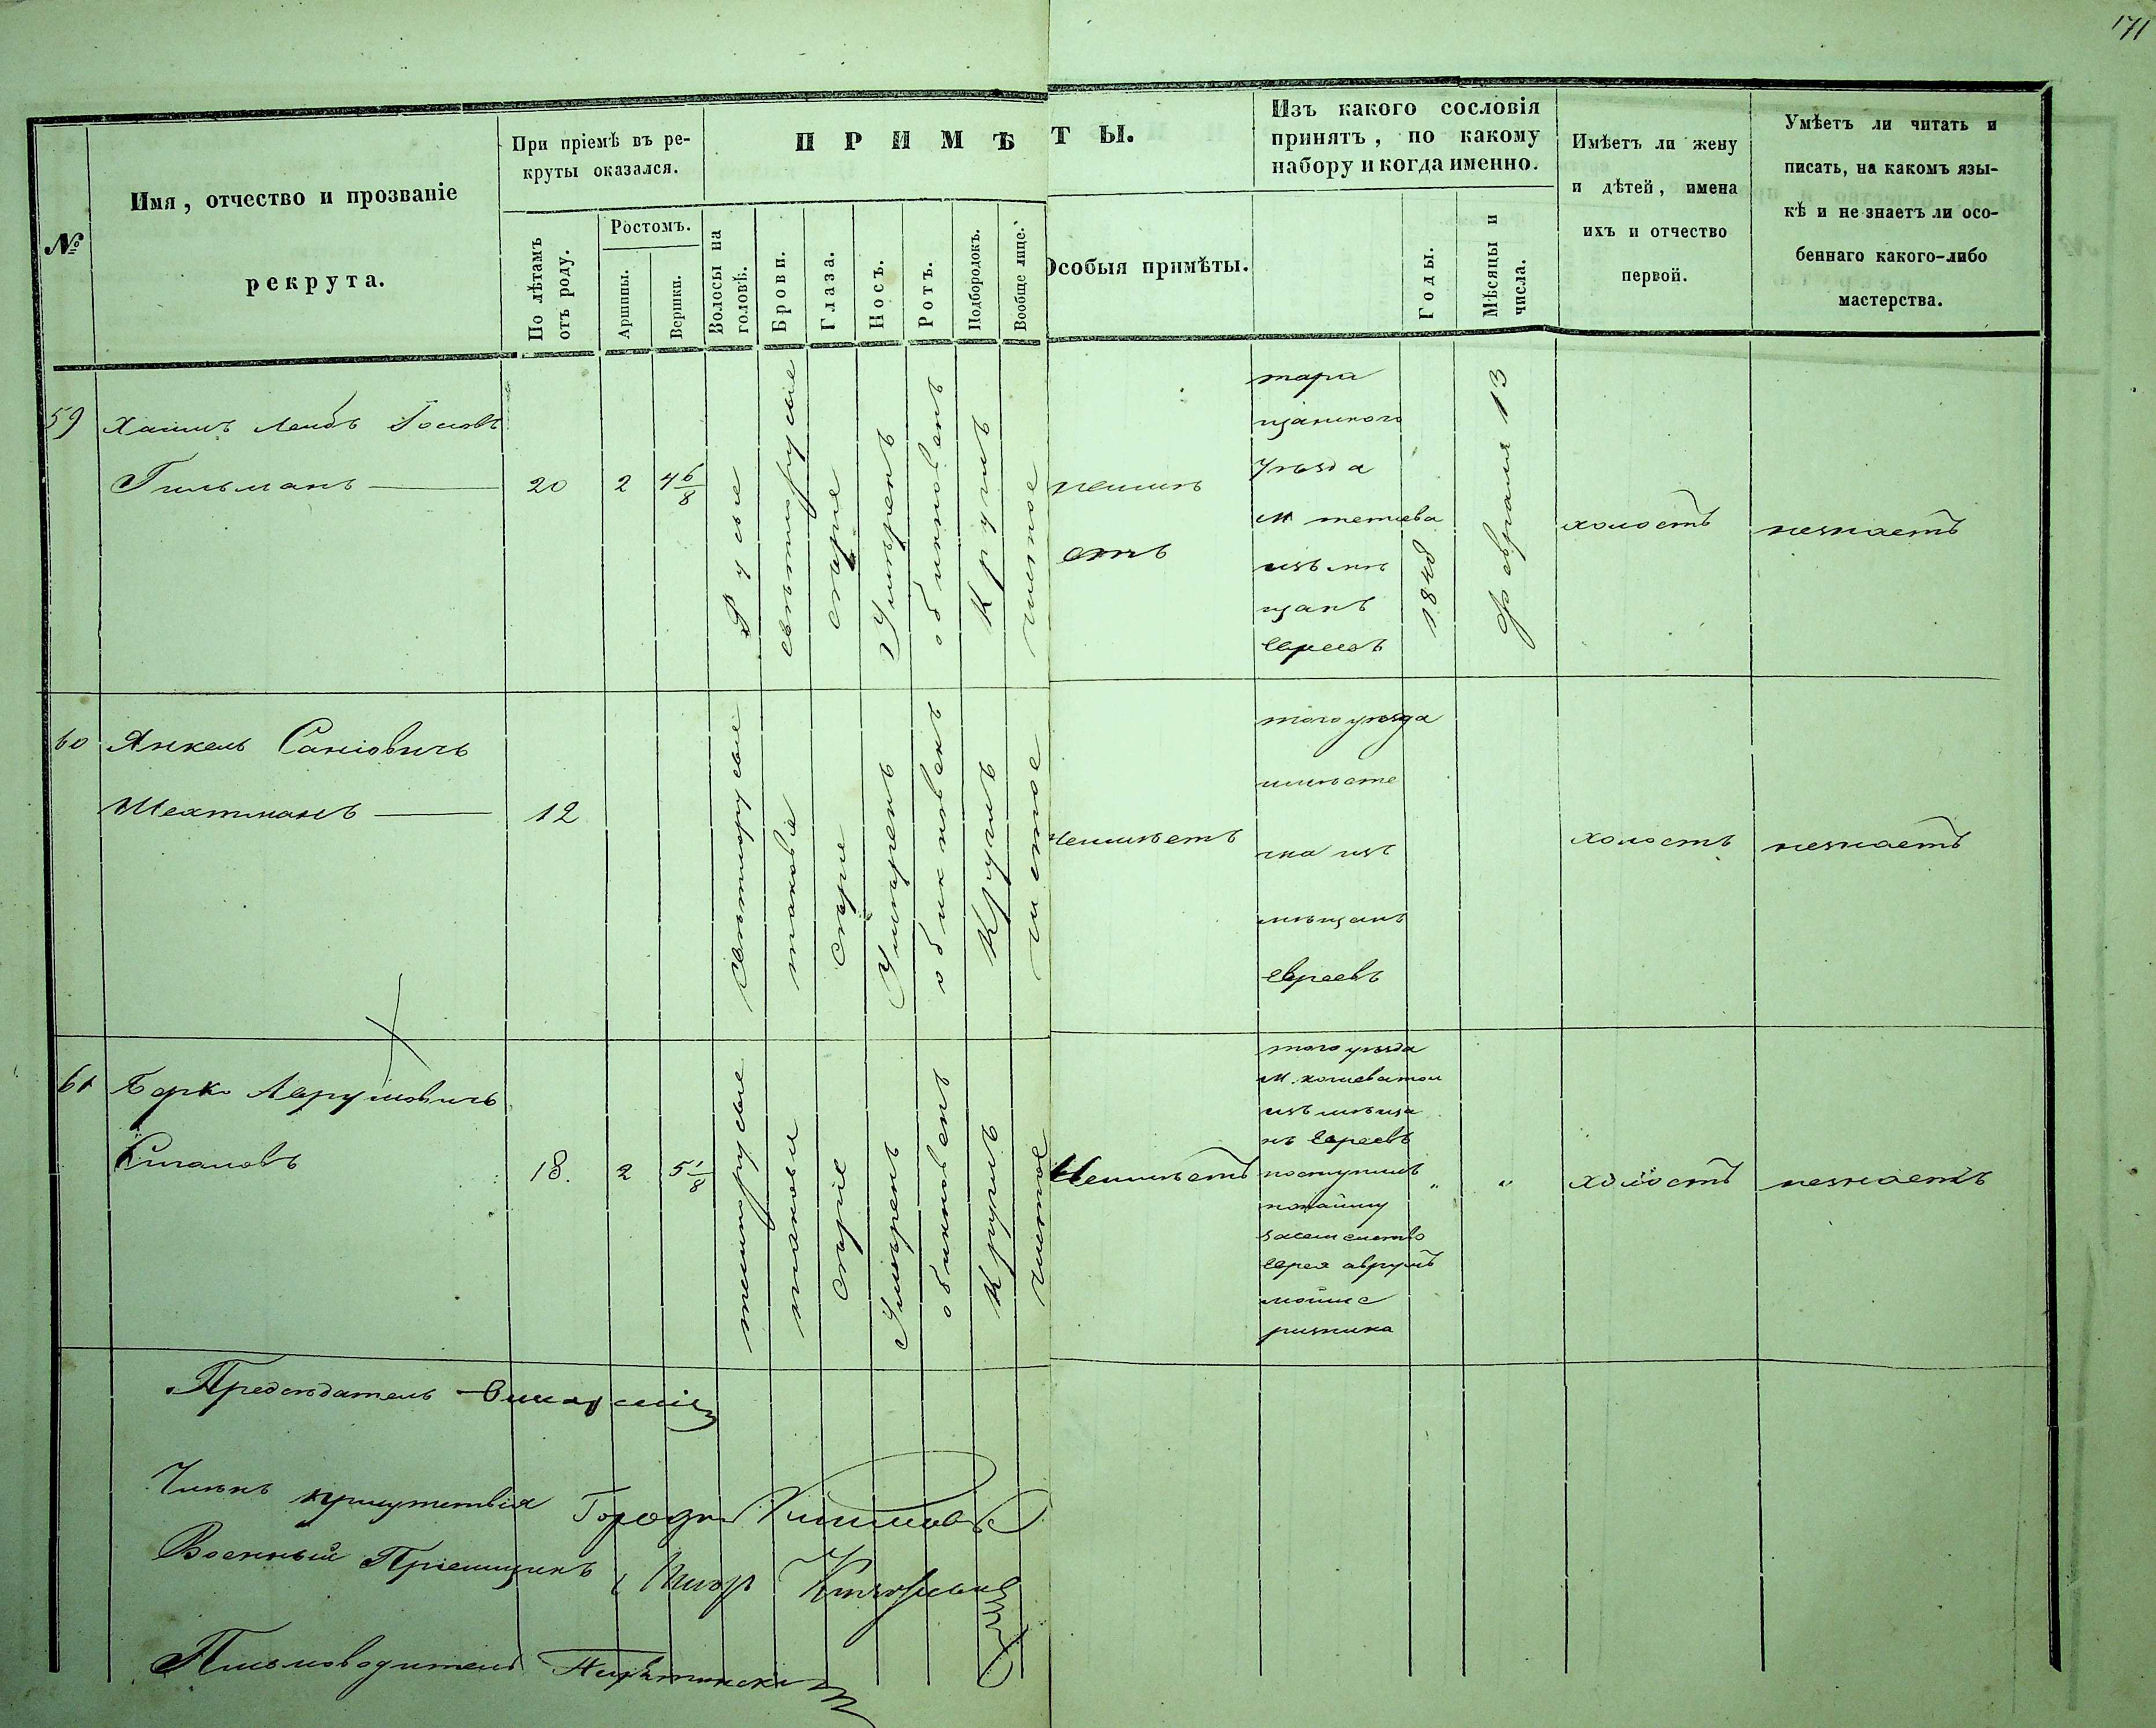 171
№
Имя, отчество и прозваніе
рекрута.
При пріемѣ въ ре-
круты оказался.
По лѣтамъ
отъ роду.
Ростомъ.
Аршины.
Вершки.
ПРИМѢТЫ.
Волосы на
головѣ.
Брови.
Глаза.
Носъ.
Ротъ.
Подбородокъ.
Вообще лице.
Особыя примѣты.
Изъ какого сословія
принятъ, по какому
набору и когда именно.
Годы.
Мѣсяцы и
числа.
Имѣетъ ли жену
и дѣтей, имена
ихъ и отчество
первой.
Умѣетъ ли читать и
писать, на какомъ язы-
кѣ и не знаетъ ли осо-
беннаго какого-либо
мастерства.
59
Хаимъ Лейбъ
Гильманъ
20
2
4 6/8
Русые
свѣтлорусые
сѣрые
Умѣренъ
обикновенъ
Круглъ
чистое
неимѣ
етъ
тара
щанского
уѣзда
м тетіева
изъ мѣ
щанъ
евреевъ
1848
февраля 13
холостъ
незнаетъ
60
Янкель
Шехтманъ
12
свѣтлорусые
таковіе
сѣріе
Умѣренъ
обикновенъ
Круглъ
чистое
неимѣетъ
того уѣзда
чка изъ
мѣщанъ
евреевъ
холостъ
незнаетъ
61
Берко Аврумовичъ
18.
2
5 1/8
темнорусые
таковы
сѣріе
Умѣренъ
обикновенъ
Круглъ
чистое
Неимѣетъ
того уѣзда
изъ мѣща
нъ евреевъ
поступилъ
понайму
засемейство
еврея аврумъ
мойше
ризника
"
"
холостъ
незнаетъ
Предсѣдатель
Членъ присутствія
Военный Пріемщикъ
Письмоводитель